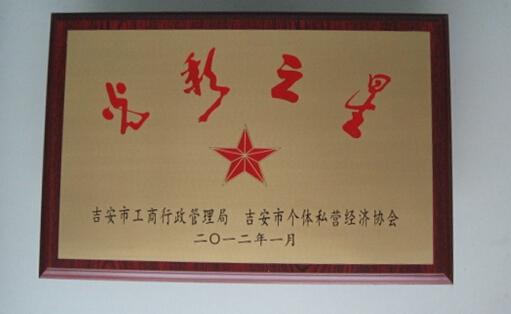 光彩之星
吉安市工商行政管理局 吉安市个体私营经济协会
二〇一二年一月